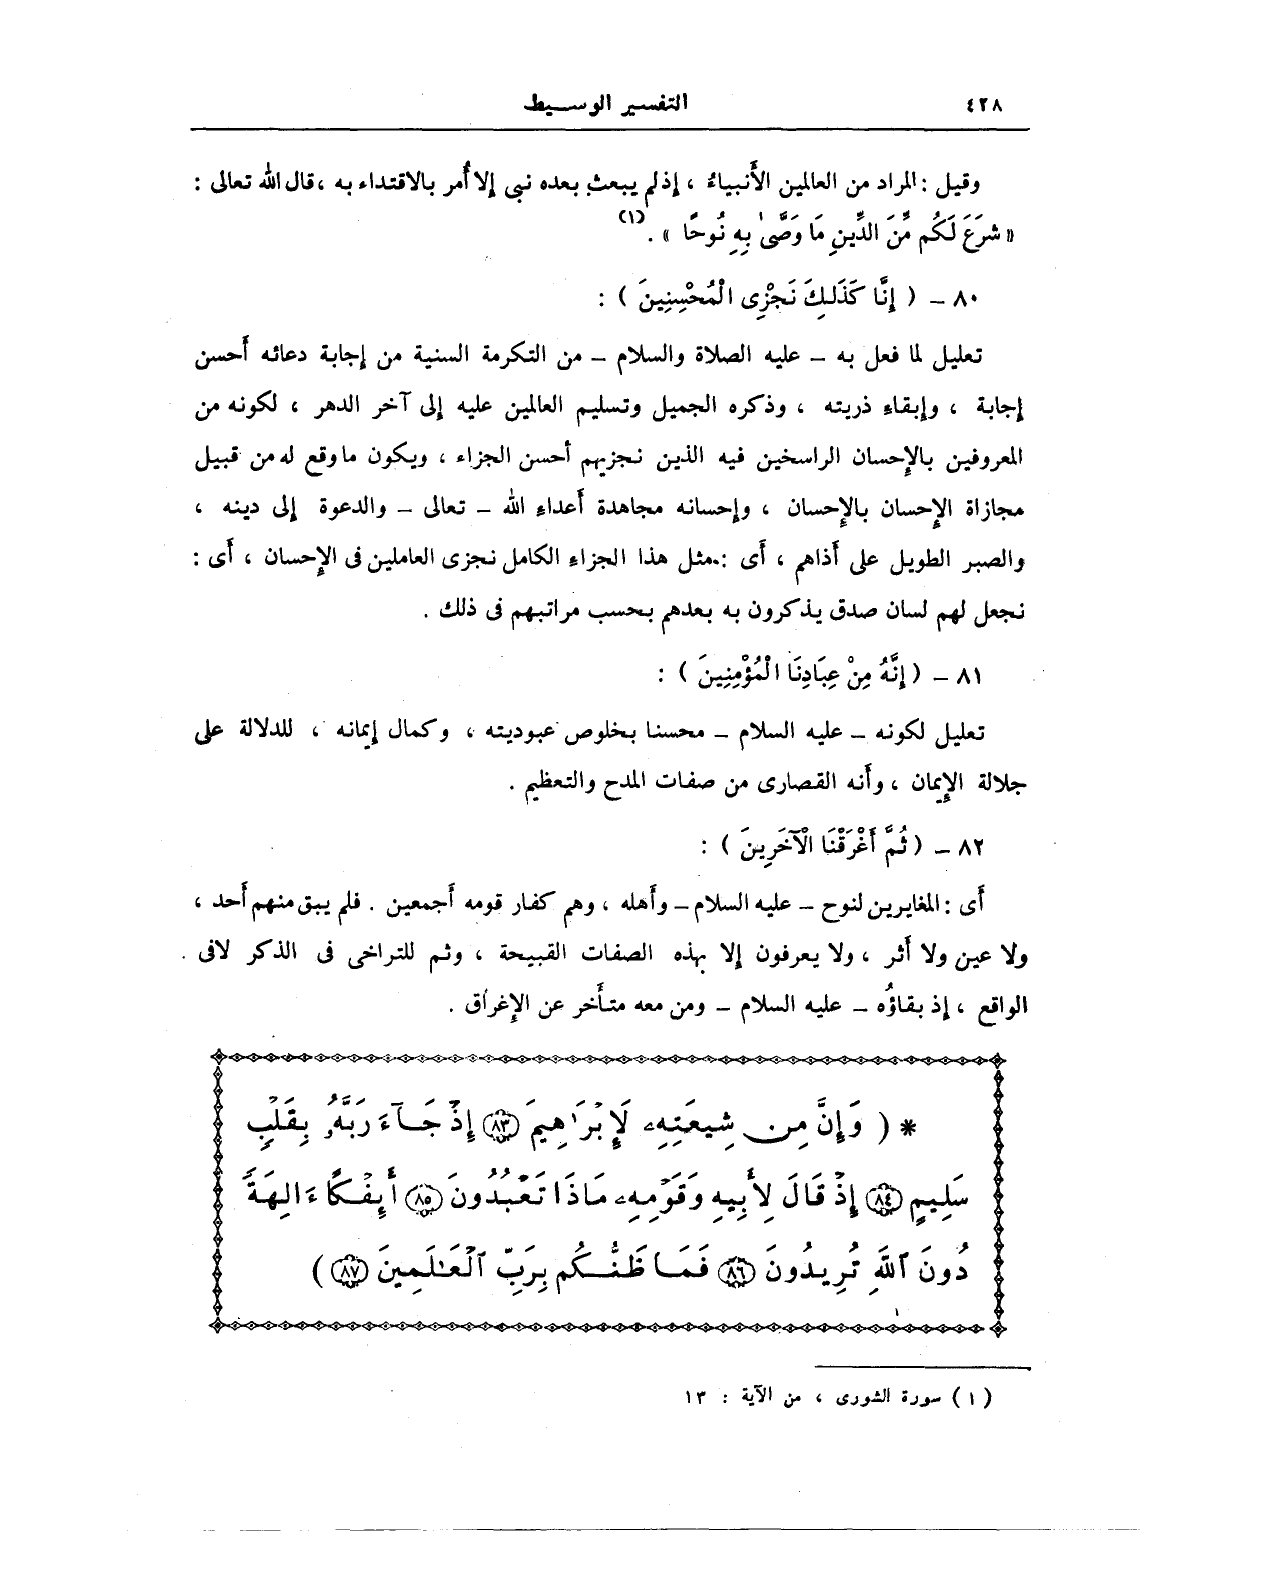 ٤٢٨ التفسير الوسيط
وقيل : المراد من العالمين الأَنبياءُ ، إذ لم يبعث بعده نبى إلا أُمر بالاقتداء به ، قال الله تعالى :
« شَرَعَ لَكُم مِّنَ الدِّينِ مَا وَصَّىٰ بِهِ نُوحًا » . (١)
٨٠ – ( إِنَّا كَذَلِكَ نَجْزِى الْمُحْسِنِينَ ) :
تعليل لما فعل به – عليه الصلاة والسلام – من التكرمة السنية من إجابة دعائه أَحسن
إجابة ، وإبقاء ذريته ، وذكره الجميل وتسليم العالمين عليه إلى آخر الدهر ، لكونه من
المعروفين بالإِحسان الراسخين فيه الذين نجزيهم أَحسن الجزاء ، ويكون ما وقع له من قبيل
مجازاة الإِحسان بالإِحسان ، وإحسانه مجاهدة أَعداءِ الله – تعالى – والدعوة إلى دينه ،
والصبر الطويل على أَذاهم ، أَى : مثل هذا الجزاءِ الكامل نجزى العاملين فى الإِحسان ، أَى :
نجعل لهم لسان صدق يذكرون به بعدهم بحسب مراتبهم فى ذلك .
٨١ – ( إِنَّهُ مِنْ عِبَادِنَا الْمُؤْمِنِينَ ) :
تعليل لكونه – عليه السلام – محسنا بخلوص عبوديته ، وكمال إيمانه ، للدلالة على
جلالة الإِيمان ، وأَنه القصارى من صفات المدح والتعظيم .
٨٢ – ( ثُمَّ أَغْرَقْنَا الْآخَرِينَ ) :
أَى : المغايرين لنوح – عليه السلام – وأَهله ، وهم كفار قومه أَجمعين . فلم يبق منهم أَحد ،
ولا عين ولا أَثر ، ولا يعرفون إلا بهذه الصفات القبيحة ، وثم للتراخى فى الذكر لا فى
الواقع ، إذ بقاؤُه – عليه السلام – ومن معه متأَخر عن الإِغراق .
* ( وَإِنَّ مِن شِيعَتِهِۦ لَإِبْرَٰهِيمَ ٨٣ إِذْ جَآءَ رَبَّهُۥ بِقَلْبٍ
سَلِيمٍ ٨٤ إِذْ قَالَ لِأَبِيهِ وَقَوْمِهِۦ مَاذَا تَعْبُدُونَ ٨٥ أَئِفْكًا ءَالِهَةً
دُونَ ٱللَّهِ تُرِيدُونَ ٨٦ فَمَا ظَنُّكُم بِرَبِّ ٱلْعَٰلَمِينَ ٨٧ )
(١) سورة الشورى ، من الآية : ١٣